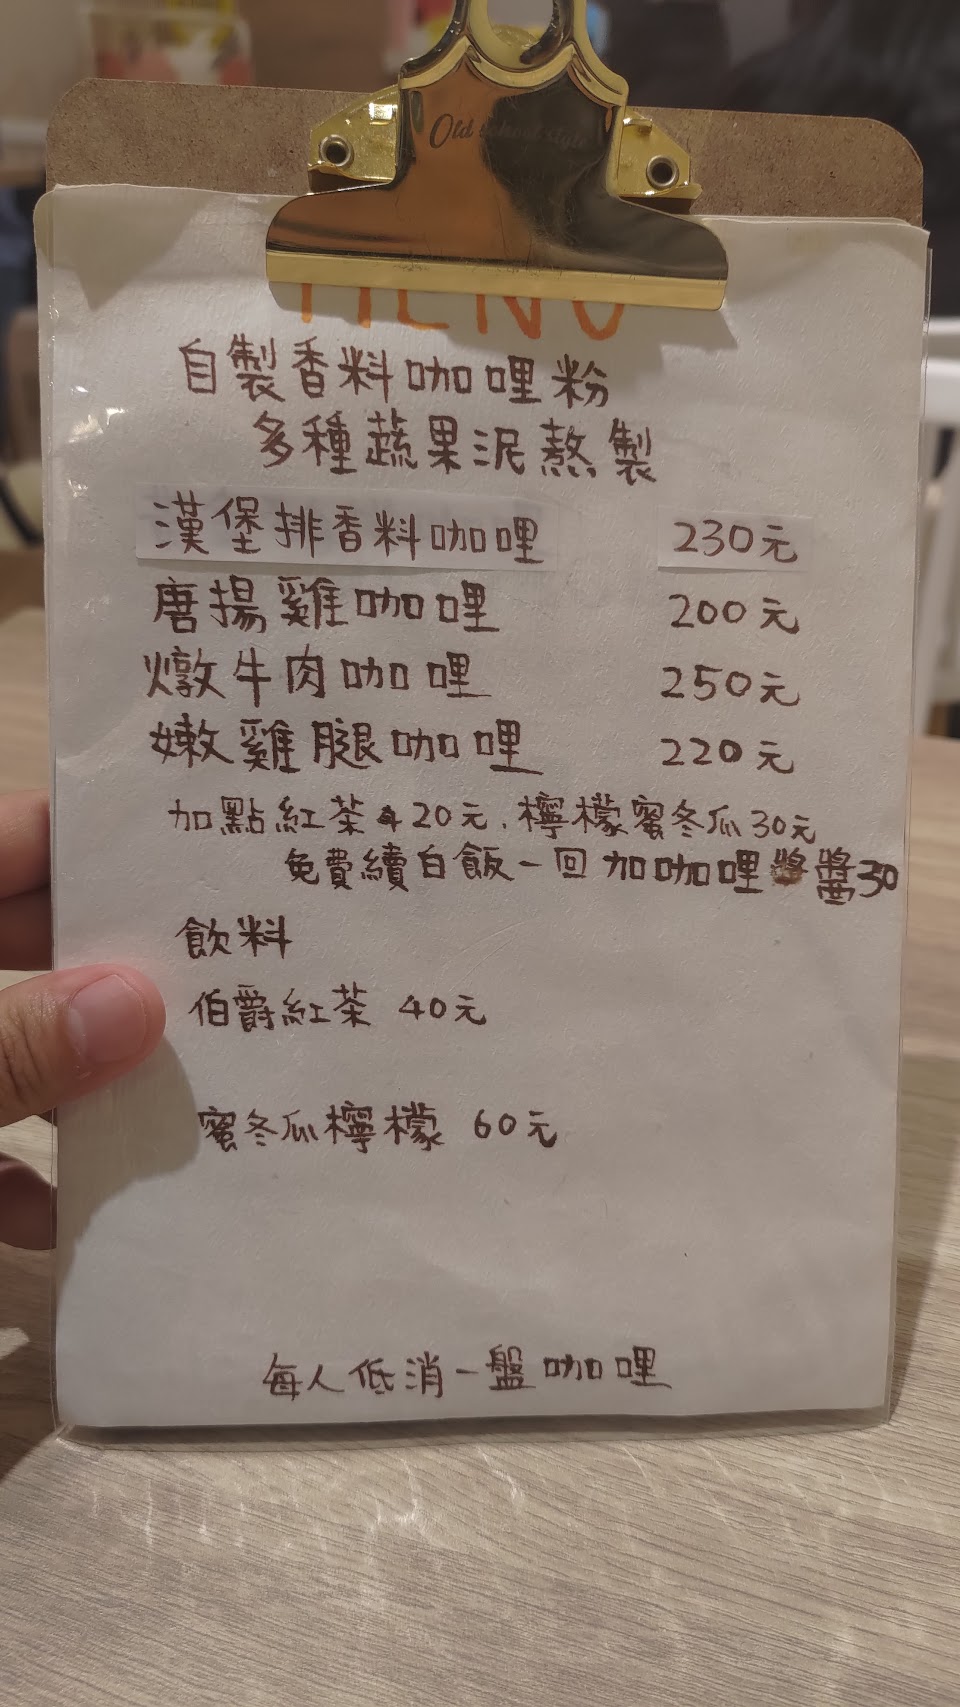 Old school style
MENU
自製香料咖哩粉
多種蔬果泥熬製
漢堡排香料咖哩 230元
唐揚雞咖哩 200元
燉牛肉咖哩 250元
嫩雞腿咖哩 220元
加點紅茶20元、檸檬蜜冬瓜30元
免費續白飯一回 加咖哩醬30
飲料
伯爵紅茶 40元
蜜冬瓜檸檬 60元
每人低消一盤咖哩